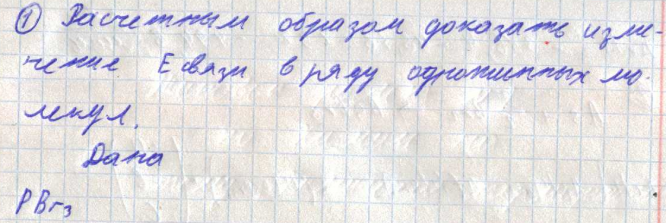 ① Расчетным образом доказать изме-
нение Е связи в ряду однотипных мо-
лекул.
Дана
PBr₃